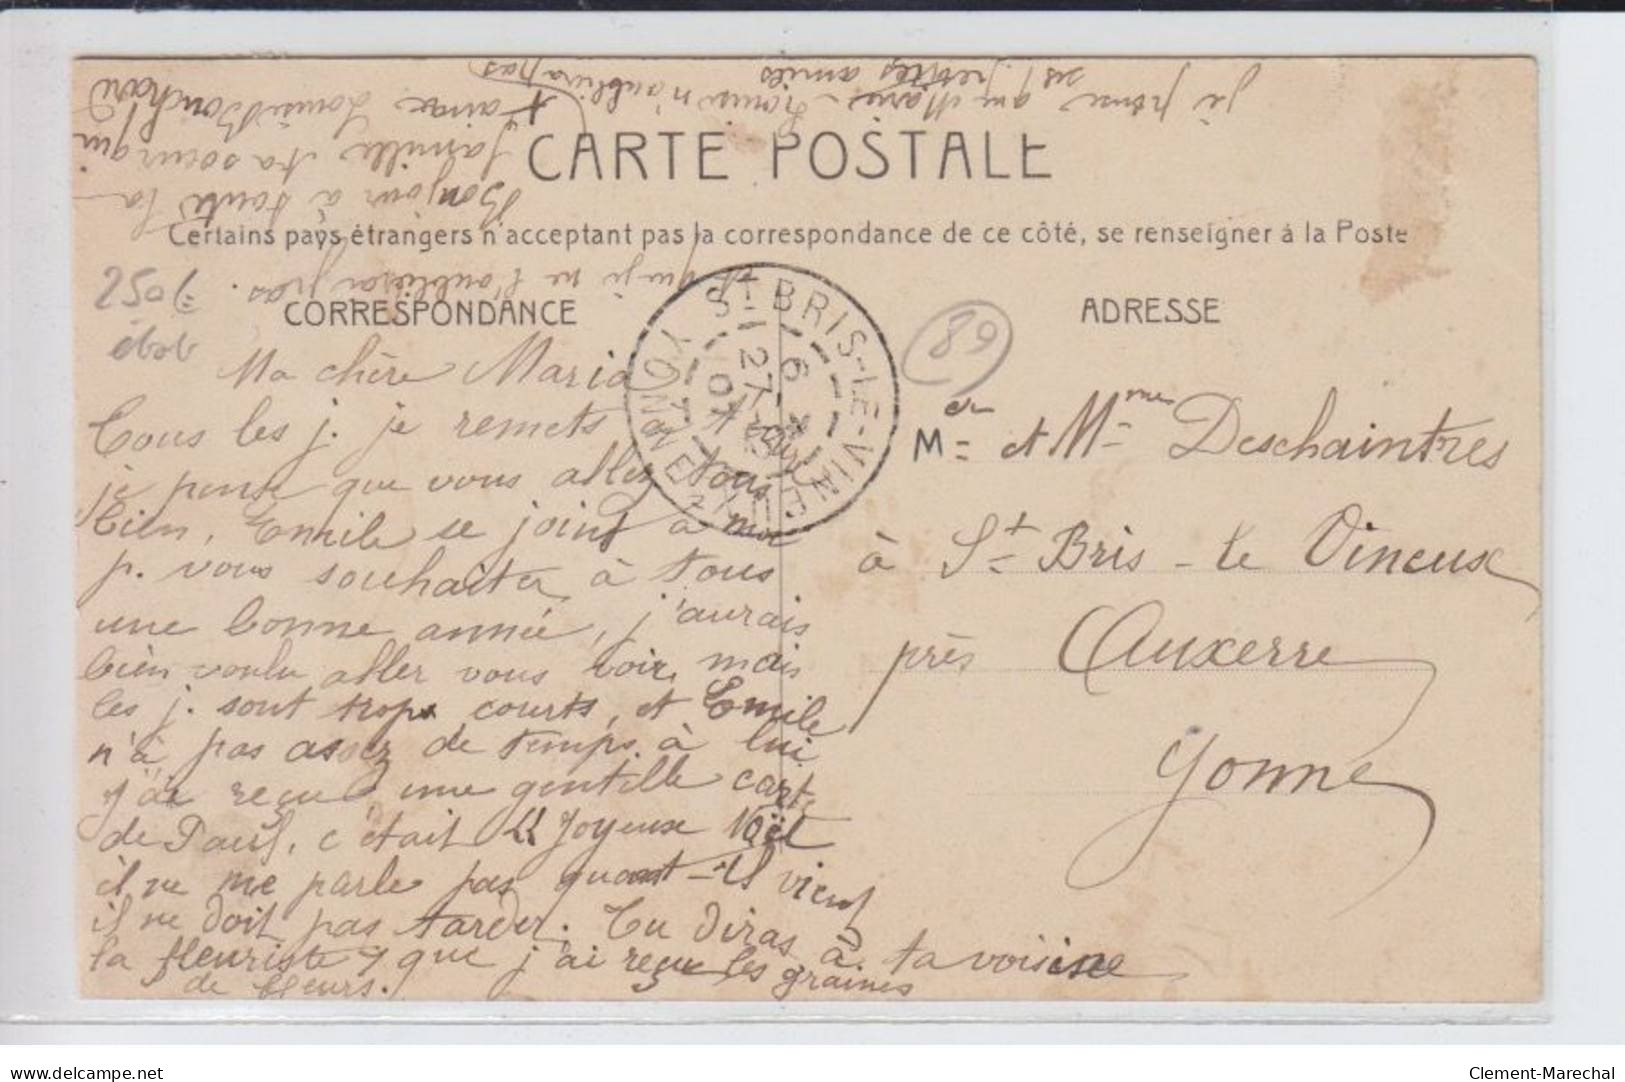 CARTE POSTALE
Certains pays étrangers n'acceptant pas la correspondance de ce côté, se renseigner à la Poste
CORRESPONDANCE
ADRESSE
89
ST BRIS-LE-VINEUX
6
27
07
YONNE
Ma chère Maria
Tous les j. je remets
je pense que vous allez tous
bien, Emile se joint à moi
p. vous souhaiter à tous
une bonne année, j'aurais
bien voulu aller vous voir, mais
les j. sont trop courts, et Emile
n'à pas assez de temps à lui
J'ai reçu une gentille carte
de Paul, c'était "Joyeux Noël
il ne me parle pas quant-il vient
il ne doit pas tarder. Tu diras à ta voisine
la fleuriste que j'ai reçu les graines
de fleurs.
Bonjour à toute ta
famille ta soeur qui
t'aime Louise Bouchard
et qui je ne t'oublierai pas.
je pense que Marie-Louise n'oubliera pas
ses petites amies
Mr et Mme Deschaintres
à St Bris-le Vineux
près Auxerre
Yonne
Clement-Marechal